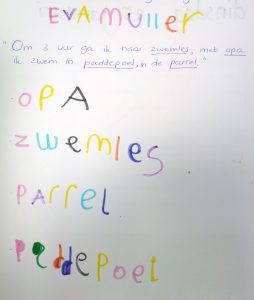 EVA MULLER
"Om 3 uur ga ik naar zwemles, met opa
ik zwem in paddepoel, in de parrel."
OPA
zwemles
PARREL
peddepoel